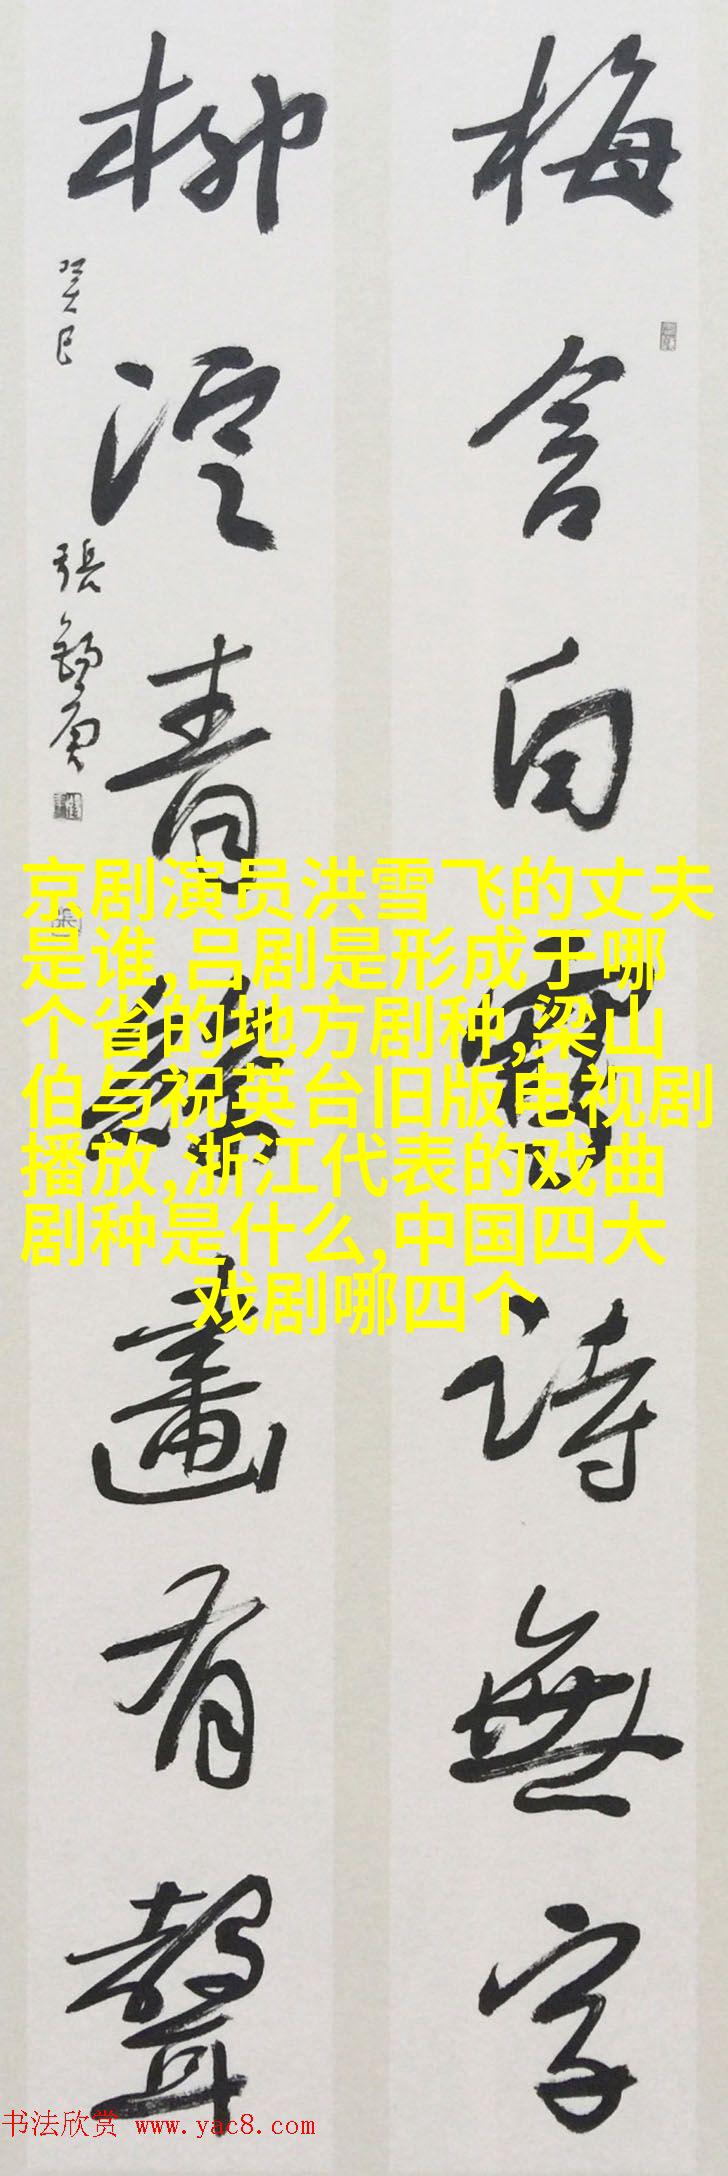 梅含白雪詩無字
柳青畫有聲
癸巳
張
京剧演员洪雪飞的丈夫
是谁,吕剧是形成于哪
个省的地方剧种,梁山
伯与祝英台旧版电视剧
播放,浙江代表的戏曲
剧种是什么,中国四大
戏剧哪四个
书法欣赏 www.yac8.com